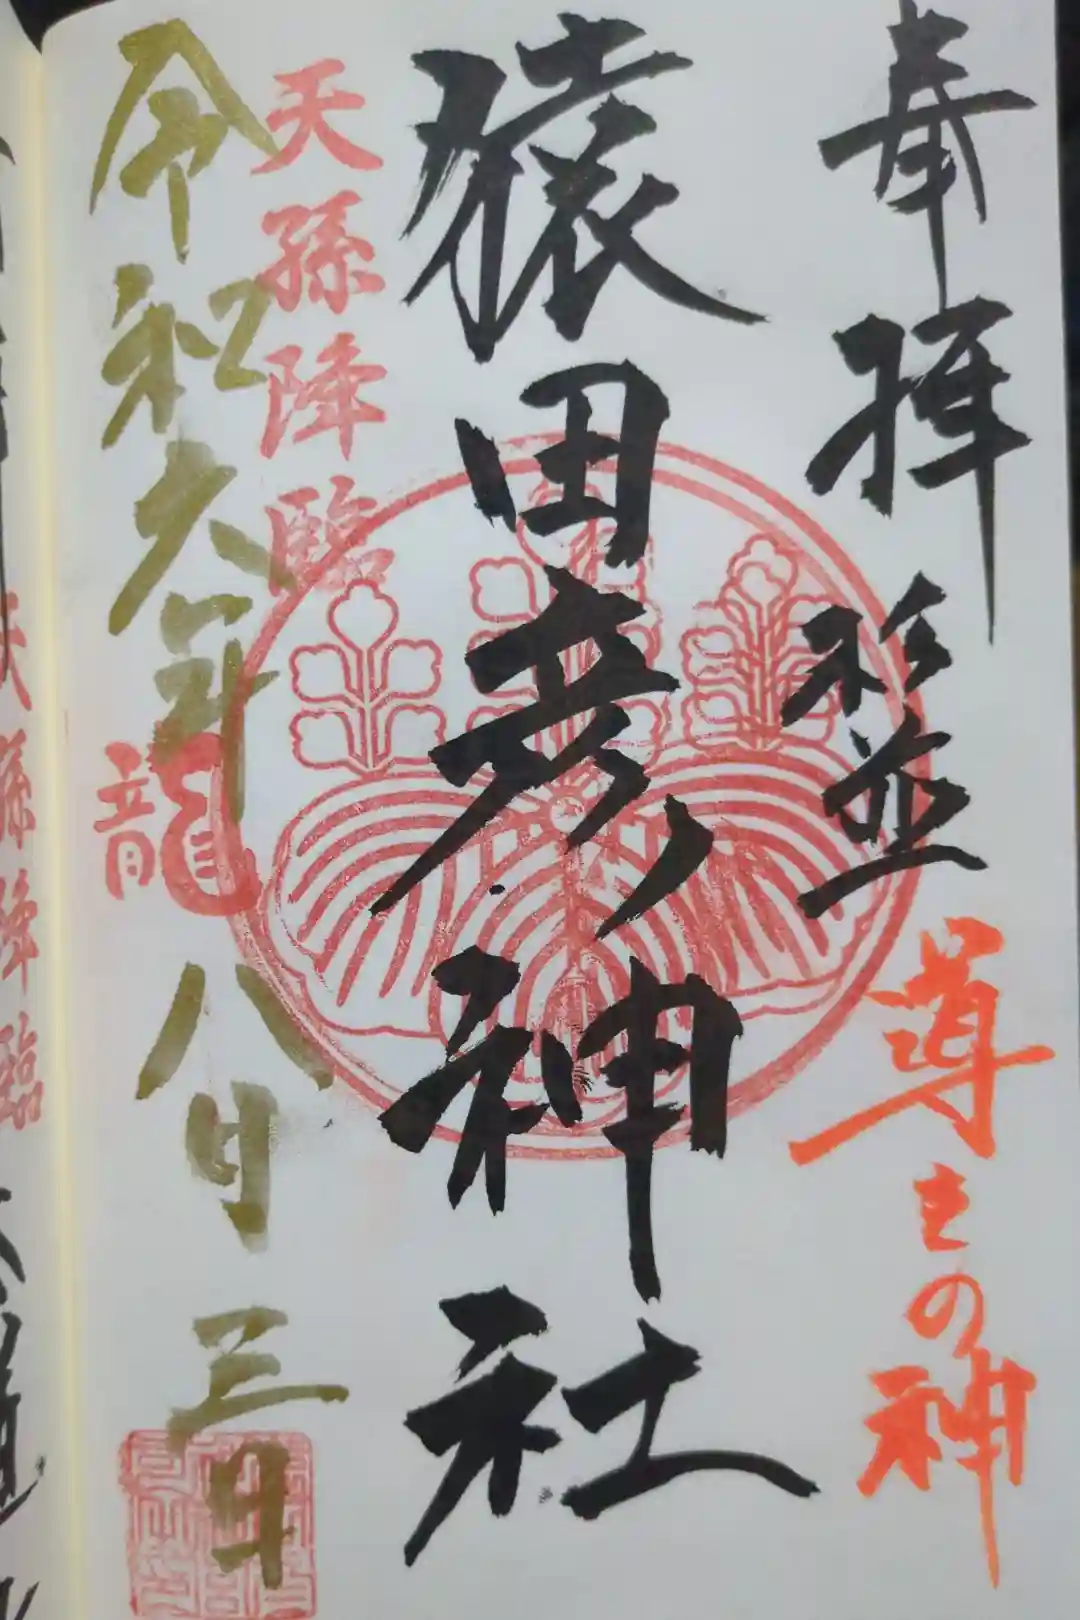 奉拝 杉並 導きの神
猿田彦神社
天孫降臨
令和六年八月三日
龍
天孫降臨